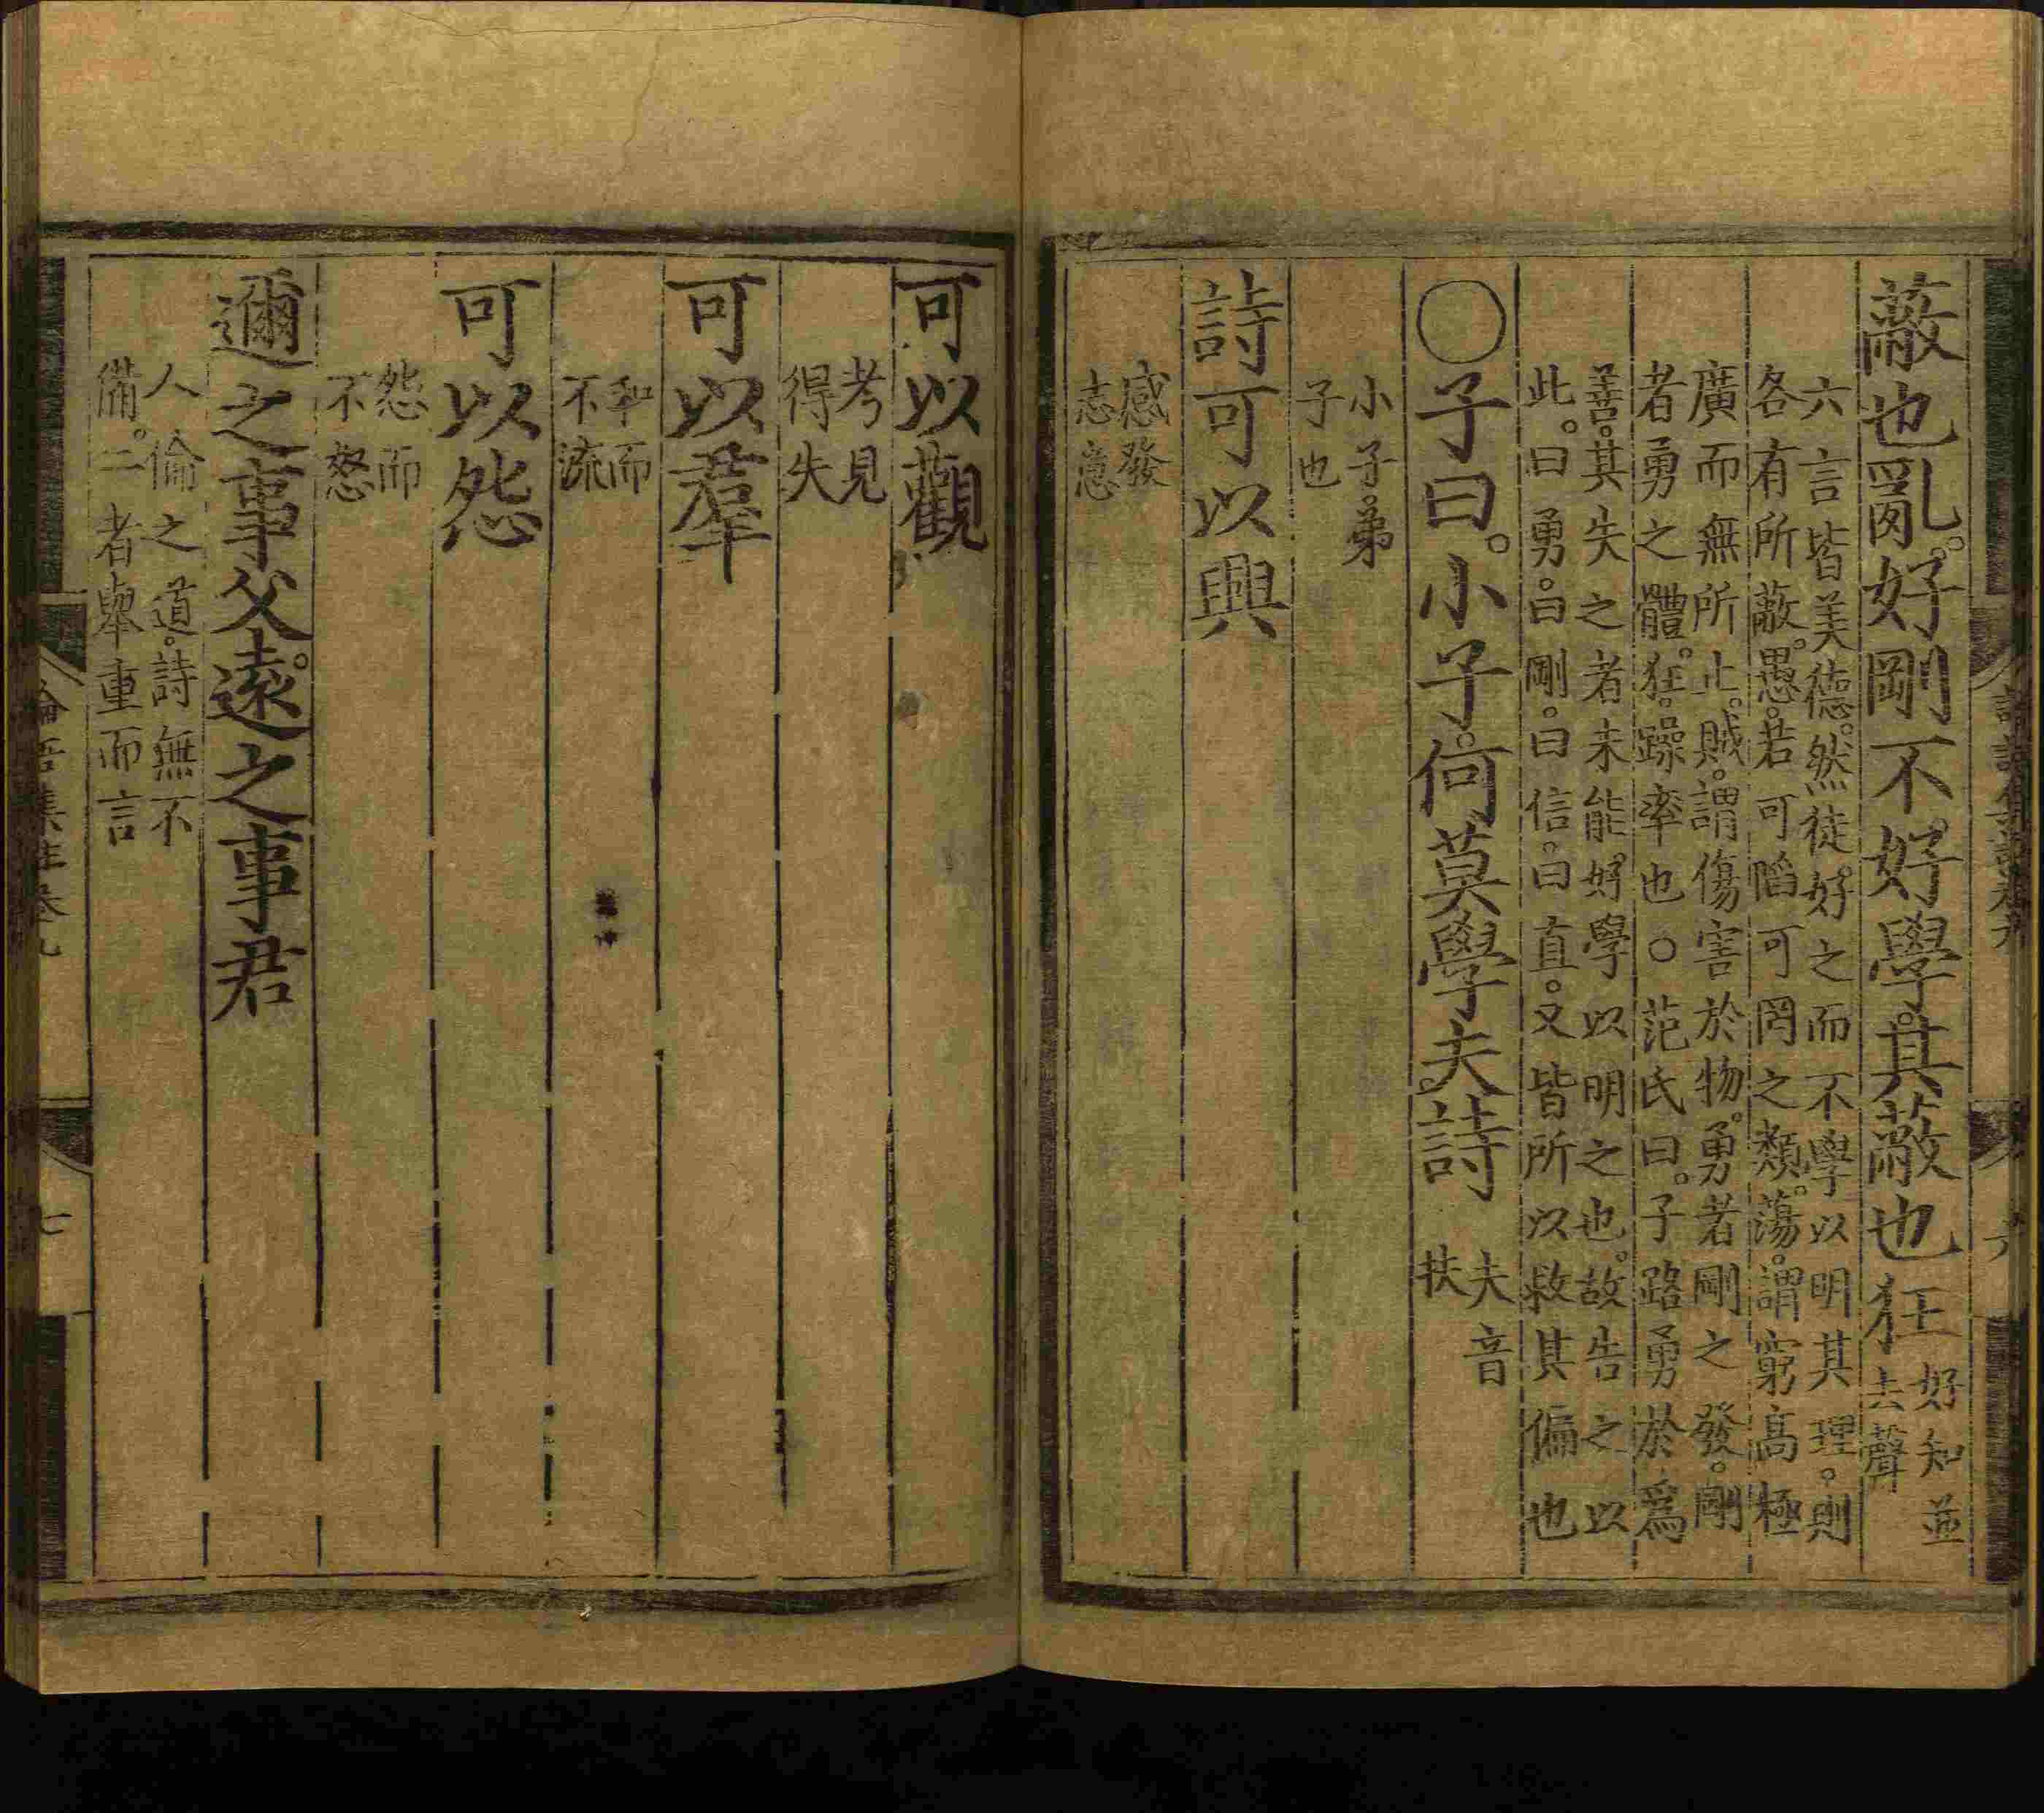 蔽也亂。好剛不好學。其蔽也狂
好知並
去聲
六言皆美德。然徒好之而不學以明其理。則
各有所蔽。愚。若可陷可罔之類。蕩。謂窮高極
廣而無所止。賊。謂傷害於物。勇者剛之發。剛
者勇之體。狂。躁率也○范氏曰。子路勇於爲
善。其失之者未能好學以明之也。故告之以
此。曰勇。曰剛。曰信。曰直。又皆所以救其偏也
○子曰。小子。何莫學夫詩
夫音
扶
小子。弟
子也
詩可以興
感發
志意
可以觀
考見
得失
可以羣
和而
不流
可以怨
怨而
不怒
邇之事父。遠之事君
人倫之道。詩無不
備。二者舉重而言
論語集註卷九
七